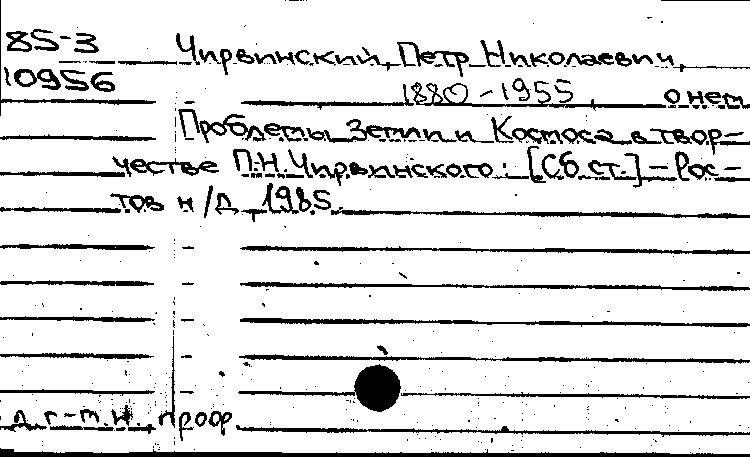 85-3 Чирвинский, Петр Николаевич,
10956 1880-1955, о нем
Проблемы Земли и Космоса в твор-
честве П.Н. Чирвинского: [Сб. ст.] - Рос-
тов н/Д, 1985.
д. г.-м. н., проф.